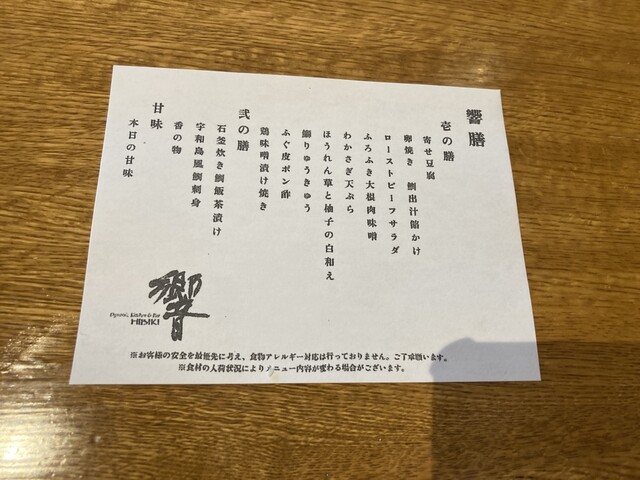 響膳
壱の膳
寄せ豆腐
卵焼き 鯛出汁餡かけ
ローストビーフサラダ
ふろふき大根肉味噌
わかさぎ天ぷら
ほうれん草と柚子の白和え
鰤りゅうきゅう
ふぐ皮ポン酢
鶏味噌漬け焼き
弐の膳
石釜炊き鯛飯茶漬け
宇和島風鯛刺身
香の物
甘味
本日の甘味
響
Dynamic Kitchen & Bar
HIBIKI
※お客様の安全を最優先に考え、食物アレルギー対応は行っておりません。ご了承願います。
※食材の入荷状況によりメニュー内容が変わる場合がございます。